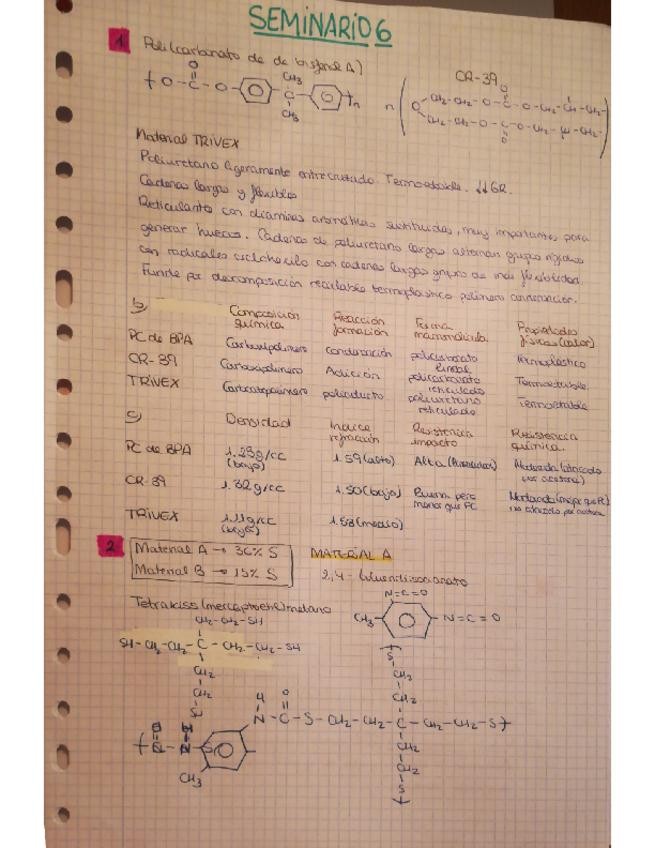 SEMINARIO 6
1 Poli(carbonato de de bisfenol A)
CR-39
Material TRIVEX
Poliuretano ligeramente entrecruzado. Termoestable. ↓↓GR.
Cadenas largas y flexibles
Reticulante con diaminas aromáticas sustituidas, muy importantes para
generar huecos. Cadenas de poliuretano largas alternan grupos rígidos
con radicales ciclohexilo con cadenas largas grupos de más flexibilidad.
Funde por descomposición reciclable termoplástico polímero condensación.
b) Composición química Reacción formación Forma macromolécula Propiedades físicas (calor)
PC de BPA Carbonopolímero condensación policarbonato lineal Termoplástico
CR-39 Carbonopolímero Adición policarbonato reticulado Termoestable
TRIVEX poliaducto poliuretano reticulado Termoestable
c) Densidad Indice refracción Resistencia impacto Resistencia química
PC de BPA (bajo) 1.59 (alto) Alta Moderada (atacado por acetona)
CR-39 1.32 g/cc 1.50 (bajo) Buena pero menor que PC
TRIVEX 1.11 g/cc 1.53 (medio)
2 Material A → 36% S
Material B → 15% S
MATERIAL A
2,4-
N=C=O
CH3- -N=C=O
CH2-CH2-SH
SH-CH2-CH2-C-CH2-CH2-SH
CH2
CH2
H O
N-C-S-CH2-CH2-C-CH2-CH2-S
CH3
S
CH2
CH2
CH2
CH2
S